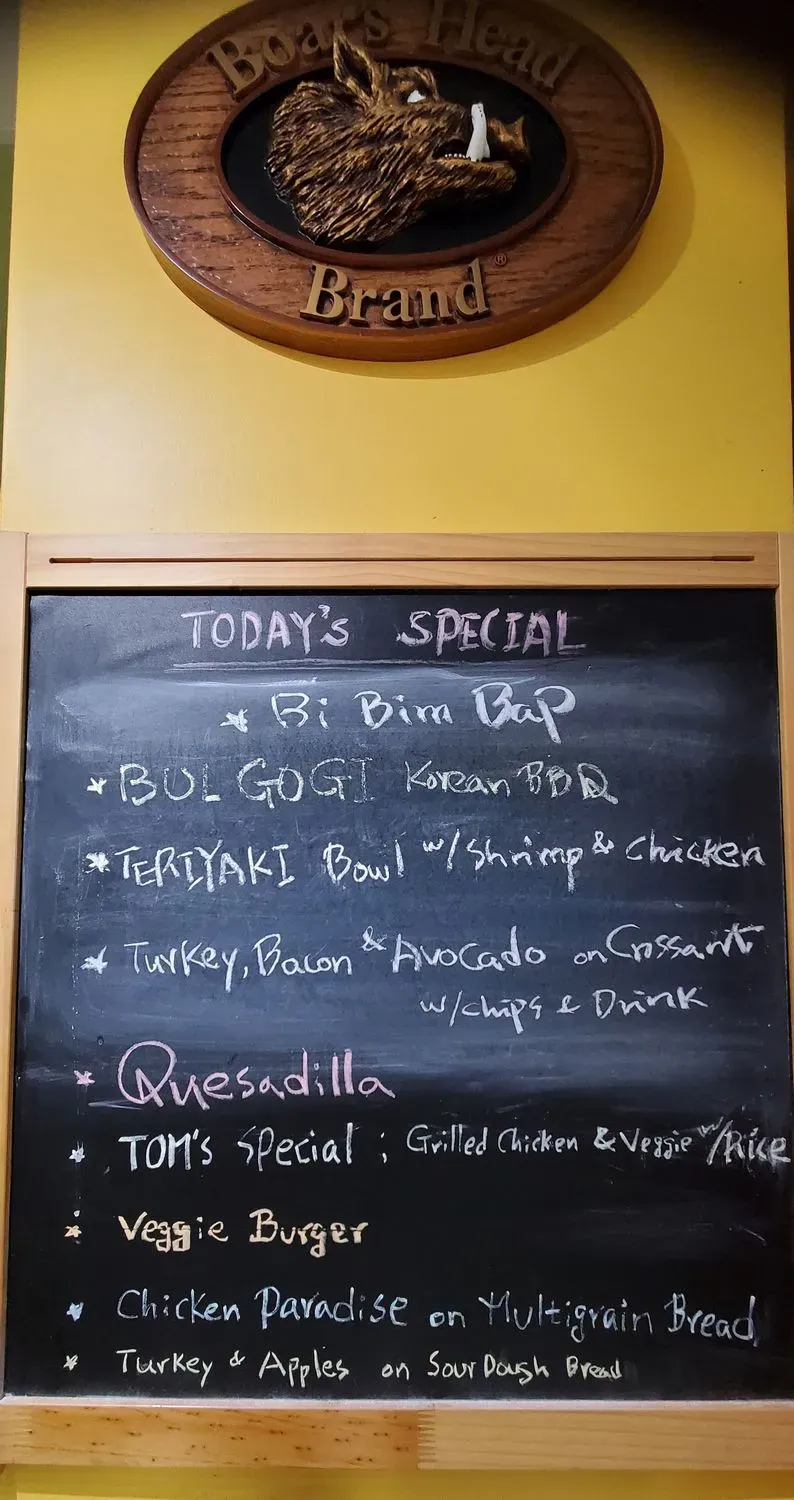 Boar's Head
Brand®
TODAY'S SPECIAL
* Bi Bim Bap
* BUL GOGI Korean BBQ
* TERIYAKI Bowl w/ Shrimp & Chicken
* Turkey, Bacon & Avocado on Crossant
w/chips & Drink
* Quesadilla
* TOM's Special ; Grilled Chicken & Veggie w/Rice
* Veggie Burger
* Chicken Paradise on Multigrain Bread
* Turkey & Apples on Sour Dough Bread